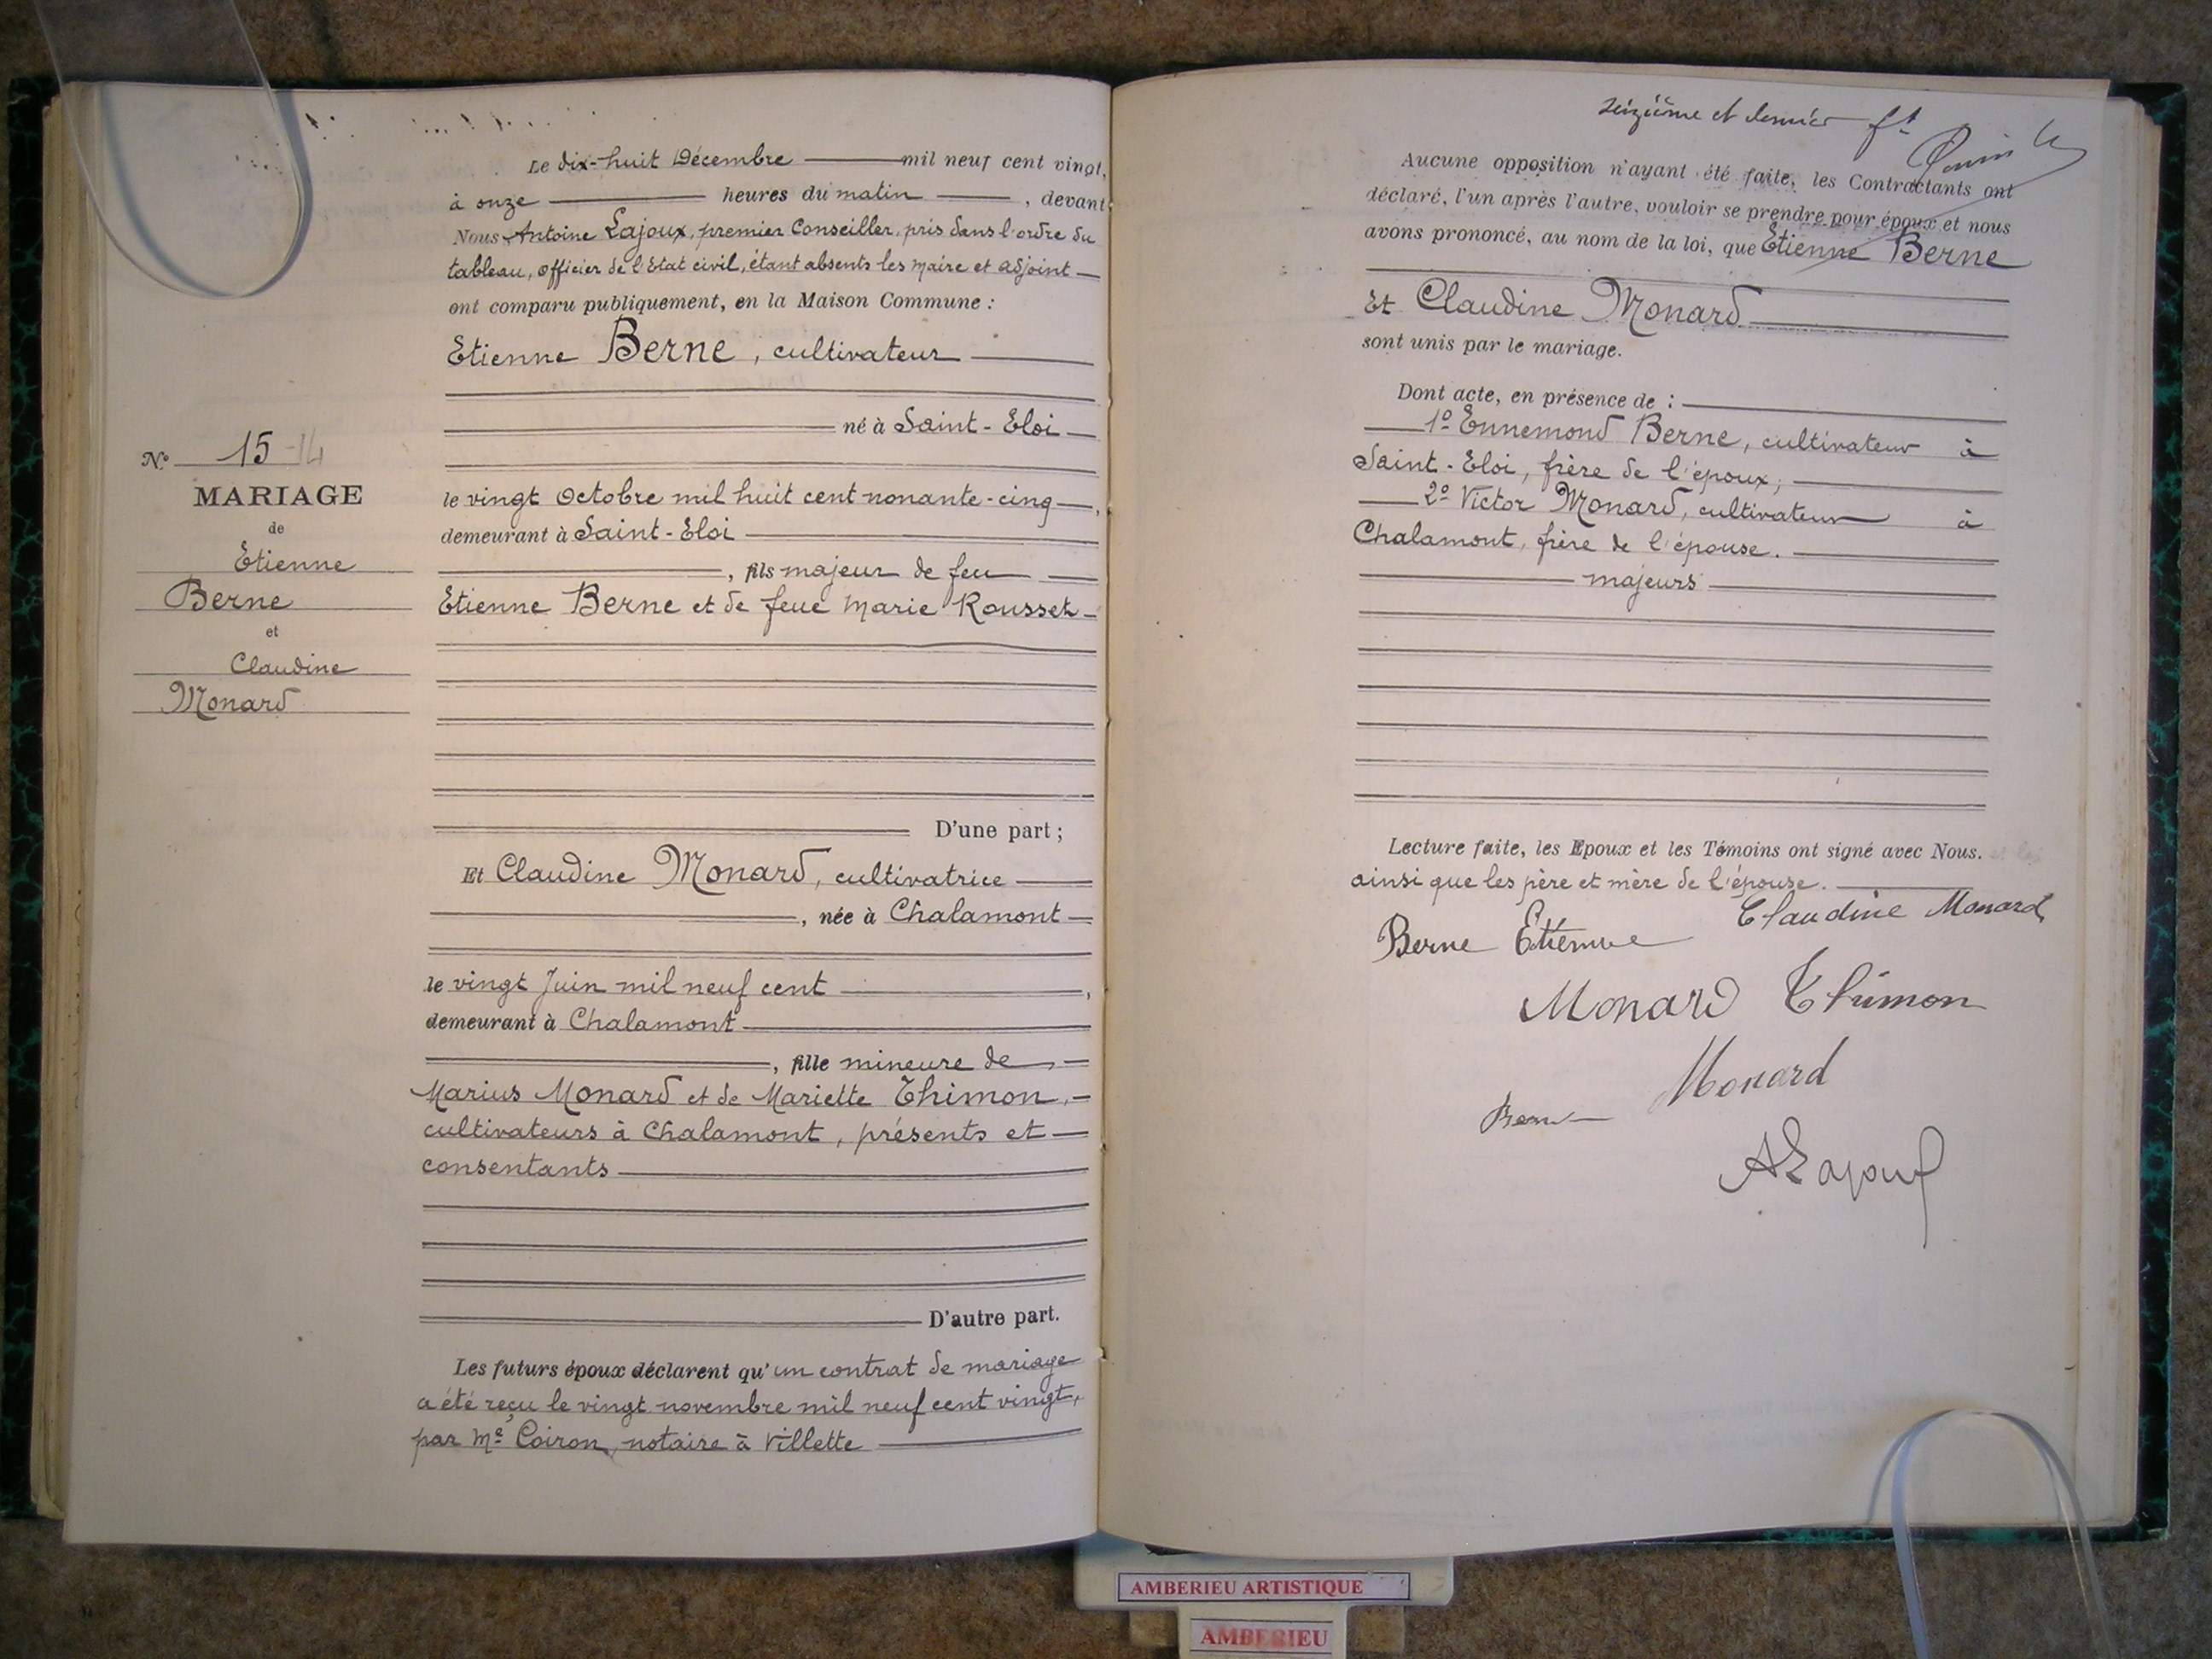 Le dix-huit Décembre mil neuf cent vingt,
à onze heures du matin, devant
Nous Antoine Lajoux, premier Conseiller, pris dans l'ordre du
tableau, officier de l'Etat civil, étant absents les Maire et adjoint
ont comparu publiquement, en la Maison Commune :
Etienne Berne, cultivateur
né à Saint-Eloi
le vingt Octobre mil huit cent nonante-cinq,
demeurant à Saint-Eloi
, fils majeur de feu
Etienne Berne et de feue Marie Rousset
D'une part ;
Et Claudine Monard, cultivatrice
, née à Chalamont
le vingt Juin mil neuf cent,
demeurant à Chalamont
, fille mineure de
Marius Monard et de Mariette Thimon,
cultivateurs à Chalamont, présents et
consentants
D'autre part.
Les futurs époux déclarent qu'un contrat de mariage
a été reçu le vingt novembre mil neuf cent vingt,
par Me Coiron, notaire à Villette
N° 15 - 14
MARIAGE
de
Etienne
Berne
et
Claudine
Monard
seizième et dernier ft
Aucune opposition n'ayant été faite, les Contractants ont
déclaré, l'un après l'autre, vouloir se prendre pour époux et nous
avons prononcé, au nom de la loi, que Etienne Berne
Et Claudine Monard
sont unis par le mariage.
Dont acte, en présence de :
1º Ennemond Berne, cultivateur à
Saint-Eloi, frère de l'époux ;
2º Victor Monard, cultivateur à
Chalamont, frère de l'épouse.
majeurs
Lecture faite, les Epoux et les Témoins ont signé avec Nous.
ainsi que les père et mère de l'épouse.
Claudine Monard
Berne Etienne
Monard Thimon
Monard
Berne
A Lajoux
AMBERIEU ARTISTIQUE
AMBERIEU